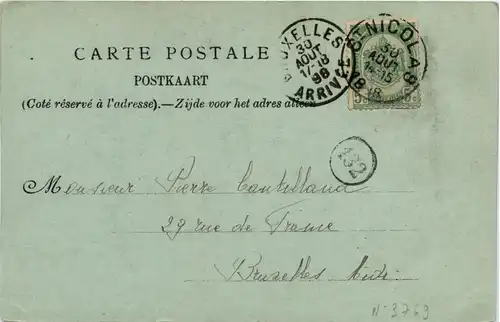 CARTE POSTALE
POSTKAART
(Coté réservé à l'adresse).—Zijde voor het adres alleen
BRUXELLES
30
AOUT
17-18
98
ARRIVÉE
ST NICOLAS
30
AOUT
14-15
98
5c 5c
432
Monsieur Pierre
29 rue de France
Bruxelles Midi
N-3769